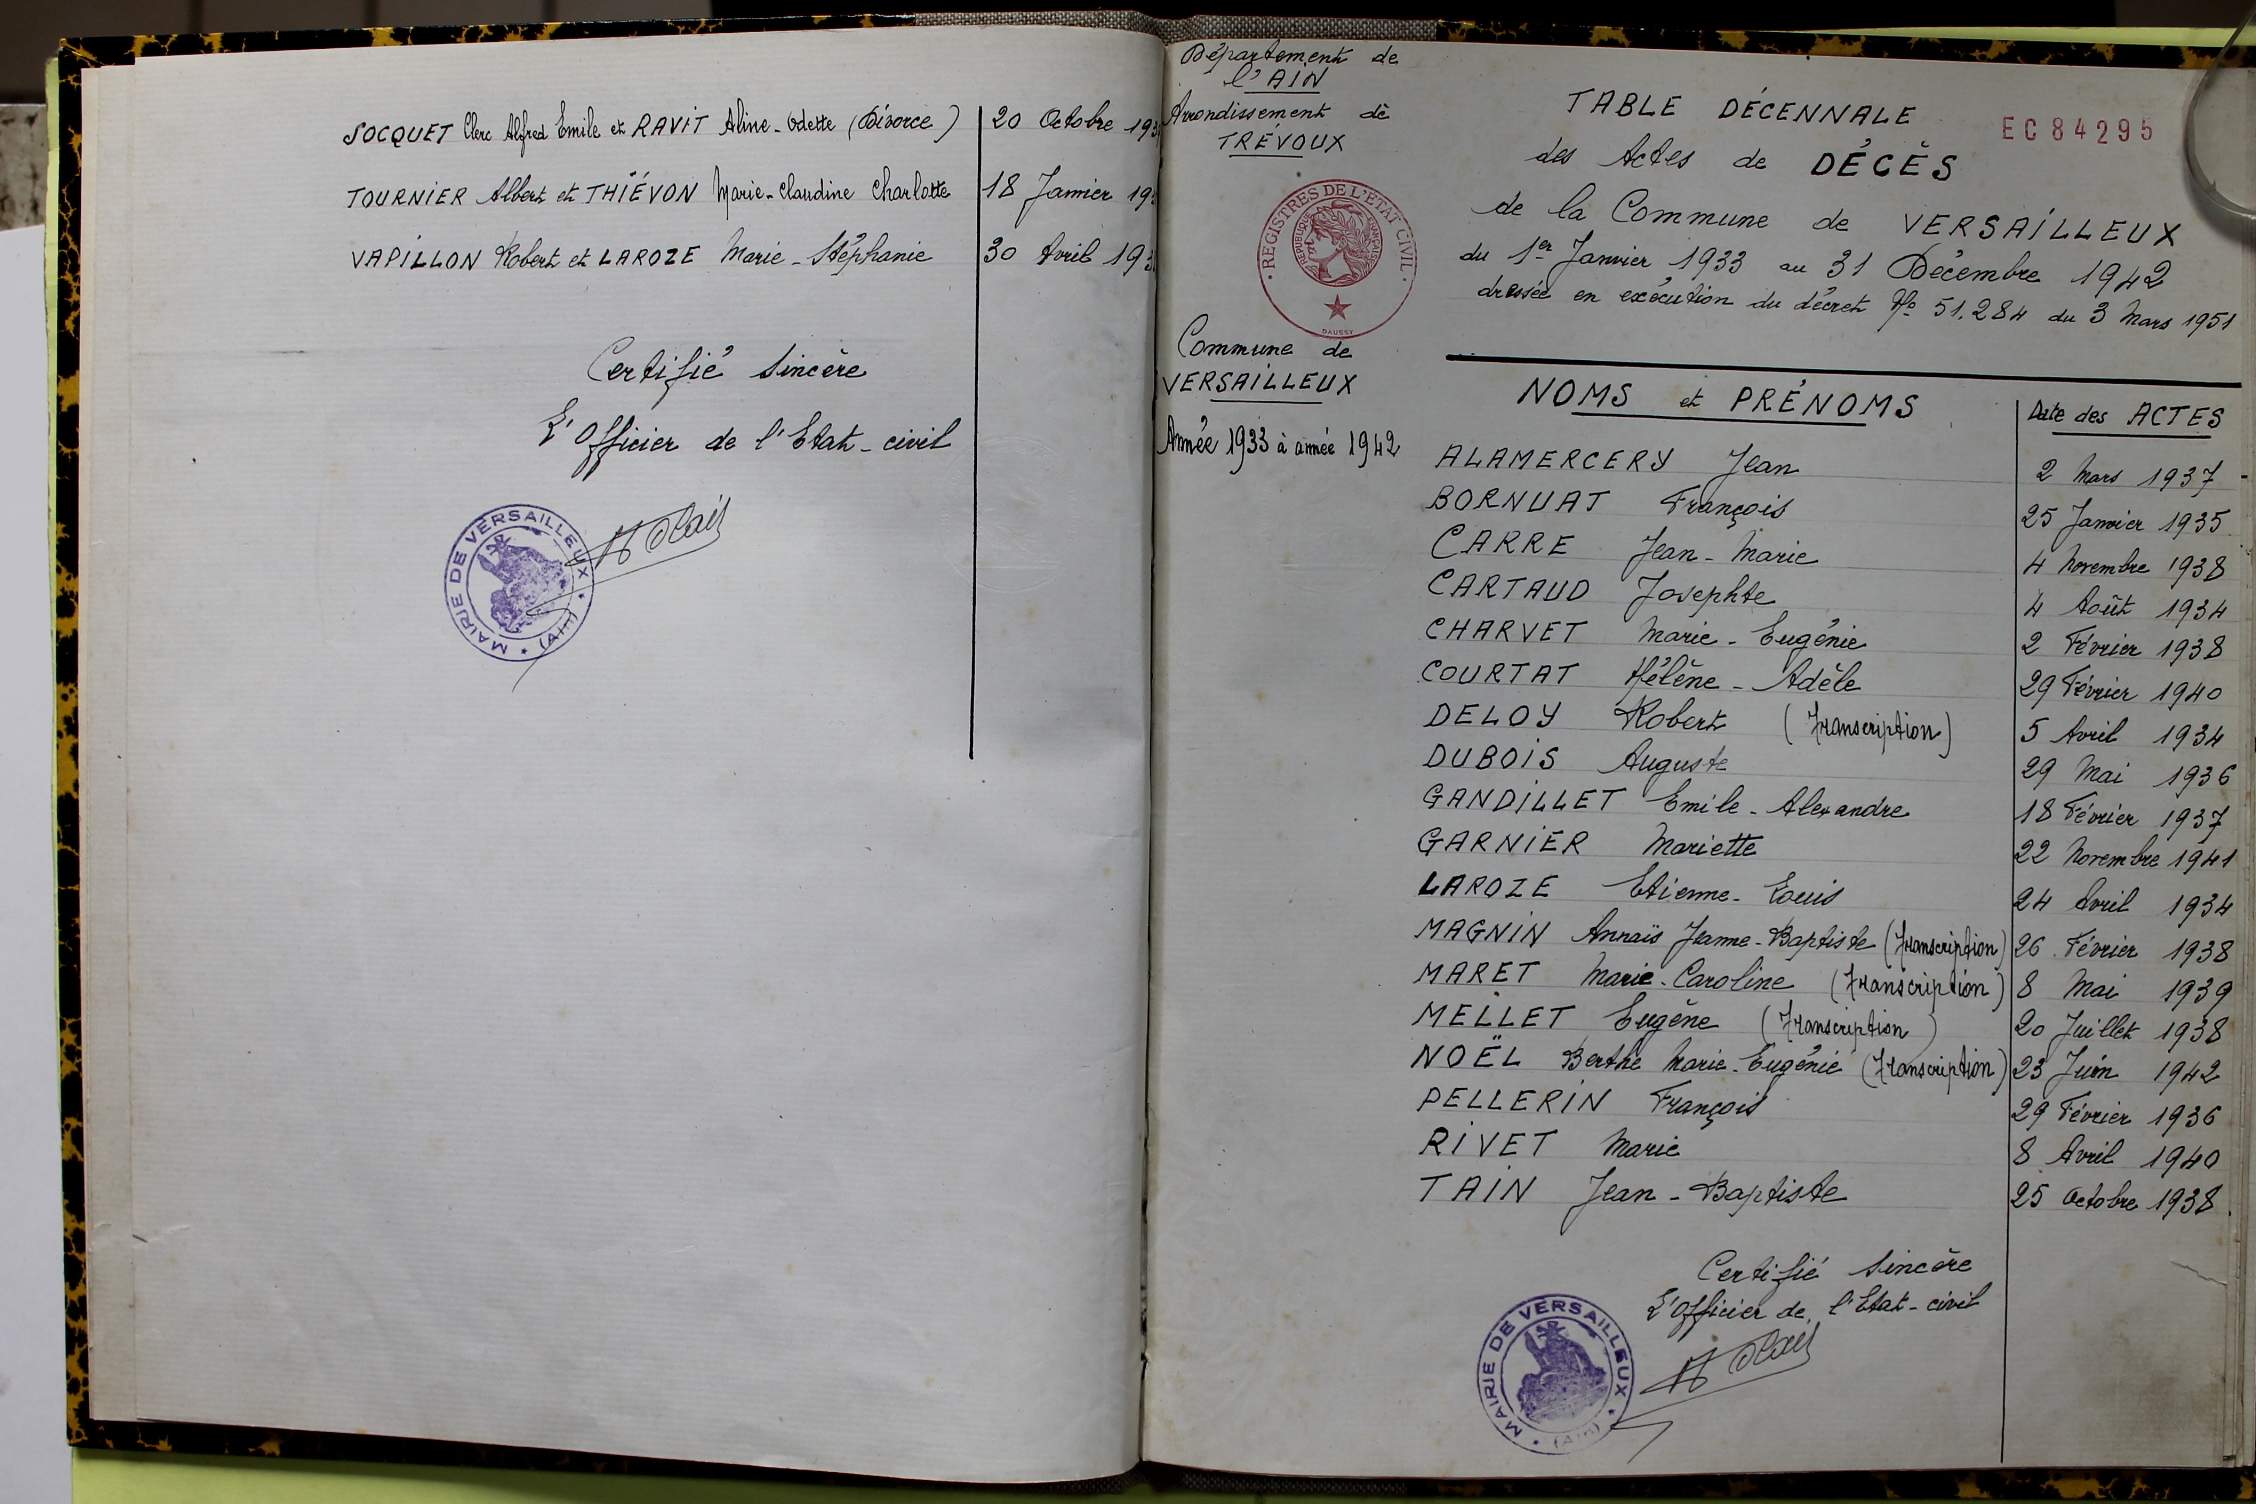 SOCQUET Clerc Alfred Emile et RAVIT Aline - Odette (Divorce) 20 Octobre 193
TOURNIER Albert et THIÉVON Marie - Claudine Charlotte 18 Janvier 19
VAPILLON Robert et LAROZE Marie - Stéphanie 30 Avril 193
Certifié Sincère
L'Officier de l'Etat - civil
MAIRIE DE VERSAILLEUX * (Ain) *
Département de
l'AIN
Arrondissement de
TRÉVOUX
· REGISTRES DE L'ETAT CIVIL ·
REPUBLIQUE FRANÇAISE
DAUSSY
Commune de
VERSAILLEUX
Année 1933 à année 1942
TABLE DÉCENNALE
EC84295
des Actes de DÉCÈS
de la Commune de VERSAILLEUX
du 1er Janvier 1933 au 31 Décembre 1942
dressée en exécution du décret No 51.284 du 3 Mars 1951
NOMS et PRÉNOMS Date des ACTES
ALAMERCERY Jean 2 Mars 1937
BORNUAT François 25 Janvier 1935
CARRE Jean - Marie 4 Novembre 1938
CARTAUD Josephte 4 Août 1934
CHARVET Marie - Eugénie 2 Février 1938
COURTAT Hélène - Adèle 29 Février 1940
DELOY Robert (Transcription) 5 Avril 1934
DUBOIS Auguste 29 Mai 1936
GANDILLET Emile - Alexandre 18 Février 1937
GARNIER Mariette 22 Novembre 1941
LAROZE Etienne - Louis 24 Avril 1934
MAGNIN Annaïs Jeanne - Baptiste (Transcription) 26 Février 1938
MARET Marie - Caroline (Transcription) 8 Mai 1939
MELLET Eugène (Transcription) 20 Juillet 1938
NOËL Berthe Marie - Eugénie (Transcription) 23 Juin 1942
PELLERIN François 29 Février 1936
RIVET Marie 8 Avril 1940
TAIN Jean - Baptiste 25 Octobre 1938
Certifié Sincère
L'Officier de l'Etat - civil
MAIRIE DE VERSAILLEUX * (Ain) *